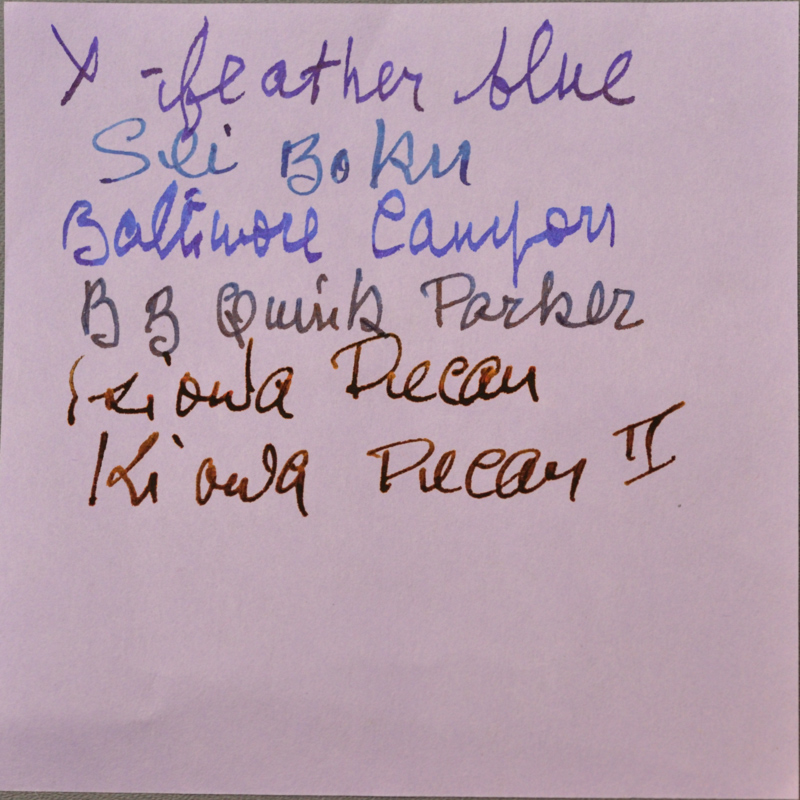 X-feather blue
Sei Boku
Baltimore Canyon
B B Quink Parker
Kiowa Pecan
Kiowa Pecan II